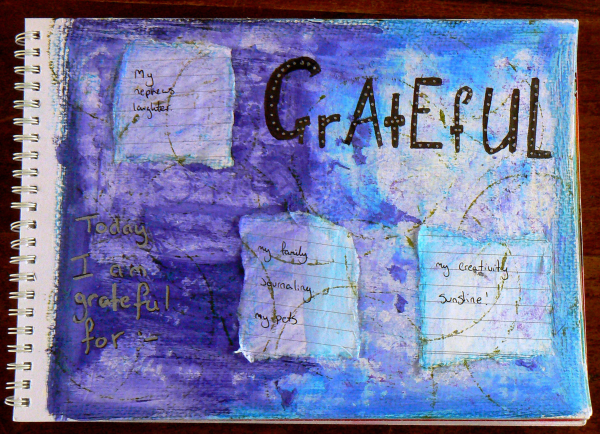 GrAtEfUL
My
nephews
laughter.
Today
I am
grateful
for -
my family
Journaling
my pets
my creativity
sunshine